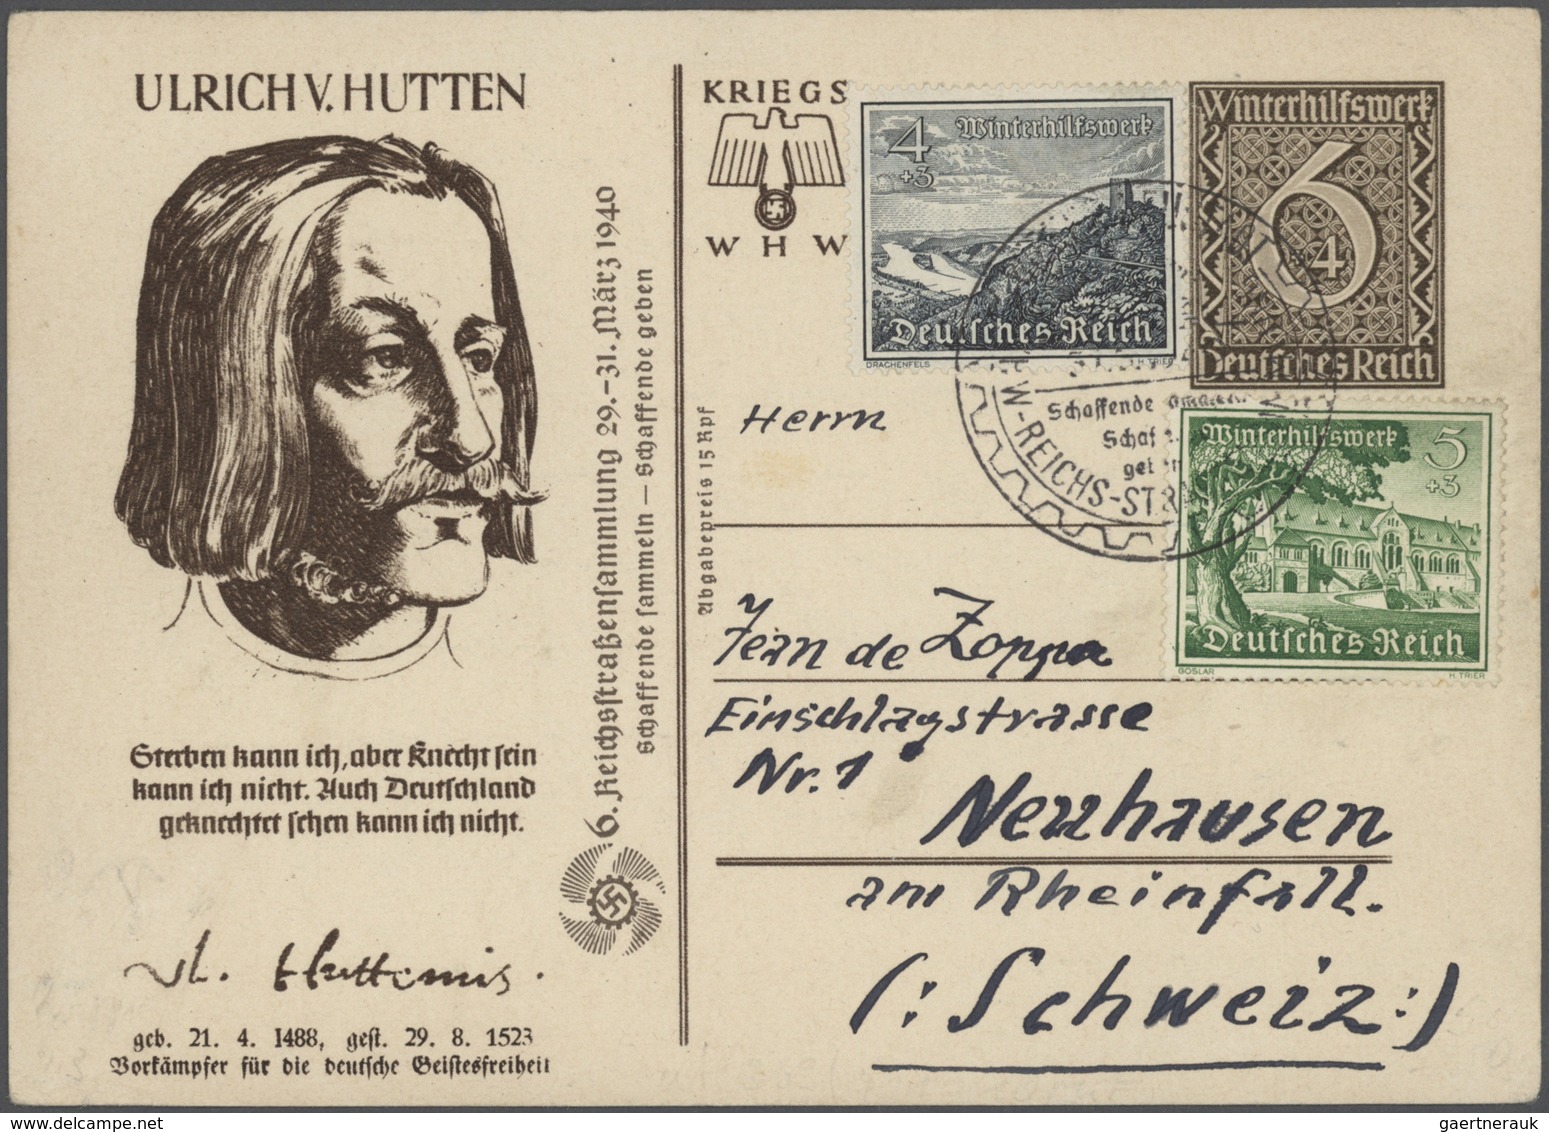 ULRICH V. HUTTEN
Sterben kann ich, aber Knecht sein
kann ich nicht. Auch Deutschland
geknechtet sehen kann ich nicht.
Vl. Huttenus.
geb. 21. 4. 1488, gest. 29. 8. 1523
Vorkämpfer für die deutsche Geistesfreiheit
6. Reichsstraßensammlung 29.–31. März 1940
Schaffende sammeln – Schaffende geben
Abgabepreis 15 Rpf
KRIEGS
W H W
4
+3
Winterhilfswerk
Deutsches Reich
DRACHENFELS
H. TRIER
Winterhilfswerk
6
+4
Deutsches Reich
Schaffende
W-REICHS-STR
Winterhilfswerk
5
+3
Deutsches Reich
GOSLAR H. TRIER
Herrn
Jean de Zoppa
Einschlagstrasse
Nr. 1
Neuhausen
am Rheinfall.
(: Schweiz :)
gaertnerauk